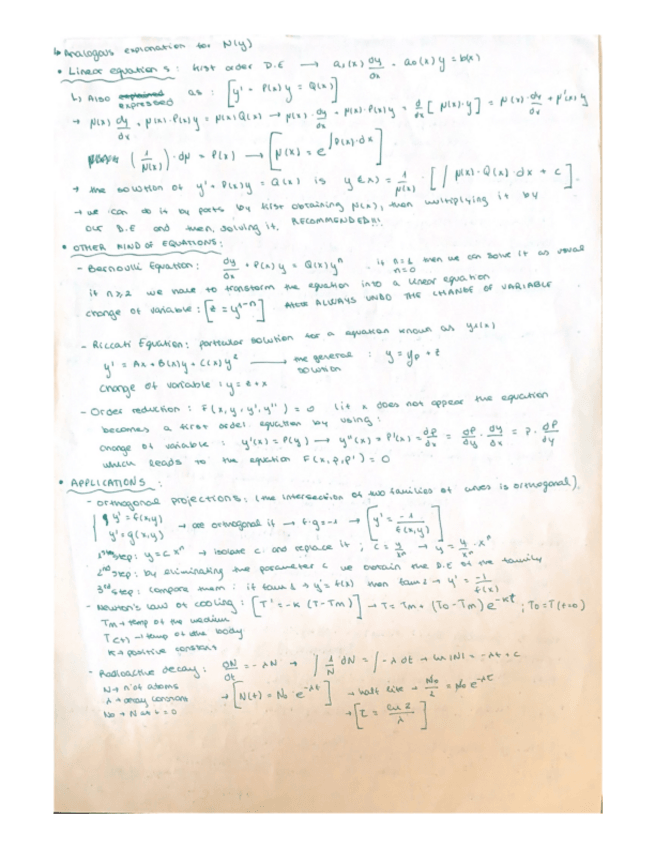 ↳ Analogous explanation for N(y)
• Linear equations: first order D.E → a₁(x) dy/dx - a₀(x) y = b(x)
↳ Also expressed as: [y' + P(x) y = Q(x)]
→ N(x) dy/dx + N(x)·P(x) y = N(x) Q(x) → N(x)· dy/dx + N(x)·P(x) y = d/dx [N(x)·y] = N(x)· dy/dx + N'(x) y
(1/N(x))·dN = P(x) → [N(x) = e^∫P(x)·dx]
→ the solution of y' + P(x) y = Q(x) is y(x) = 1/N(x) · [∫ N(x)·Q(x)·dx + c].
→ we can do it by parts by first obtaining N(x), then multiplying it by
our D.E and then, solving it. RECOMMENDED!!!
• OTHER KIND OF EQUATIONS:
- Bernoulli Equation: dy/dx + P(x) y = Q(x) yⁿ . if n=1 n=0 then we can solve it as usual
if n≥2 we have to transform the equation into a linear equation
change of variable: [z = y^1-n] ALWAYS UNDO THE CHANGE OF VARIABLE
- Riccati Equation: particular solution for a equation known as y₁(x)
y' = Ax + B(x) y + C(x) y² → the general solution : y = yp + z
change of variable: y = z + x
- Order reduction: F(x, y, y', y'') = 0 (if x does not appear the equation
becomes a first order equation by using:
change of variable: y'(x) = P(y) → y''(x) = P'(x) = dP/dx = dP/dy · dy/dx = P· dP/dy
which leads to the equation F(x, p, p') = 0
• APPLICATIONS:
- orthogonal projections: (the intersection of two families of curves is orthogonal).
{ y' = f(x,y)
y' = g(x,y) → are orthogonal if → f·g = -1 → [y' = -1/f(x,y)]
1st step: y = c xⁿ → isolate c and replace it; c = y/xⁿ → y = y/xⁿ · xⁿ
2nd step: by eliminating the parameter c we obtain the D.E of the family
3rd step: compare them: if fam 1 → y' = f(x) then fam 2 → y' = -1/f(x)
- Newton's law of cooling: [T' = -K (T - Tm)] → T = Tm + (T₀ - Tm) e^-Kt ; T₀ = T(t=0)
Tm → temp of the medium
T(t) → temp of the body
K → positive constant
- Radioactive decay: dN/dt = -λN → ∫ 1/N dN = ∫ -λ dt → ln|N| = -λt + c
N → nº of atoms
λ → decay constant
N₀ → N at t = 0
→ [N(t) = N₀ · e^-λt] → half life → N₀/2 = N₀ e^-λτ
→ [τ = ln 2/λ]